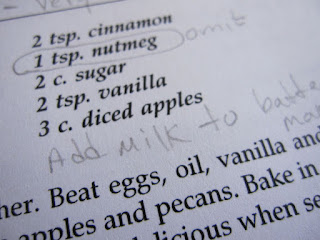 - very
2 tsp. cinnamon
1 tsp. nutmeg omit
2 c. sugar
2 tsp. vanilla
3 c. diced apples
Add Milk to batte
ma
her. Beat eggs, oil, vanilla and
apples and pecans. Bake in
licious when se